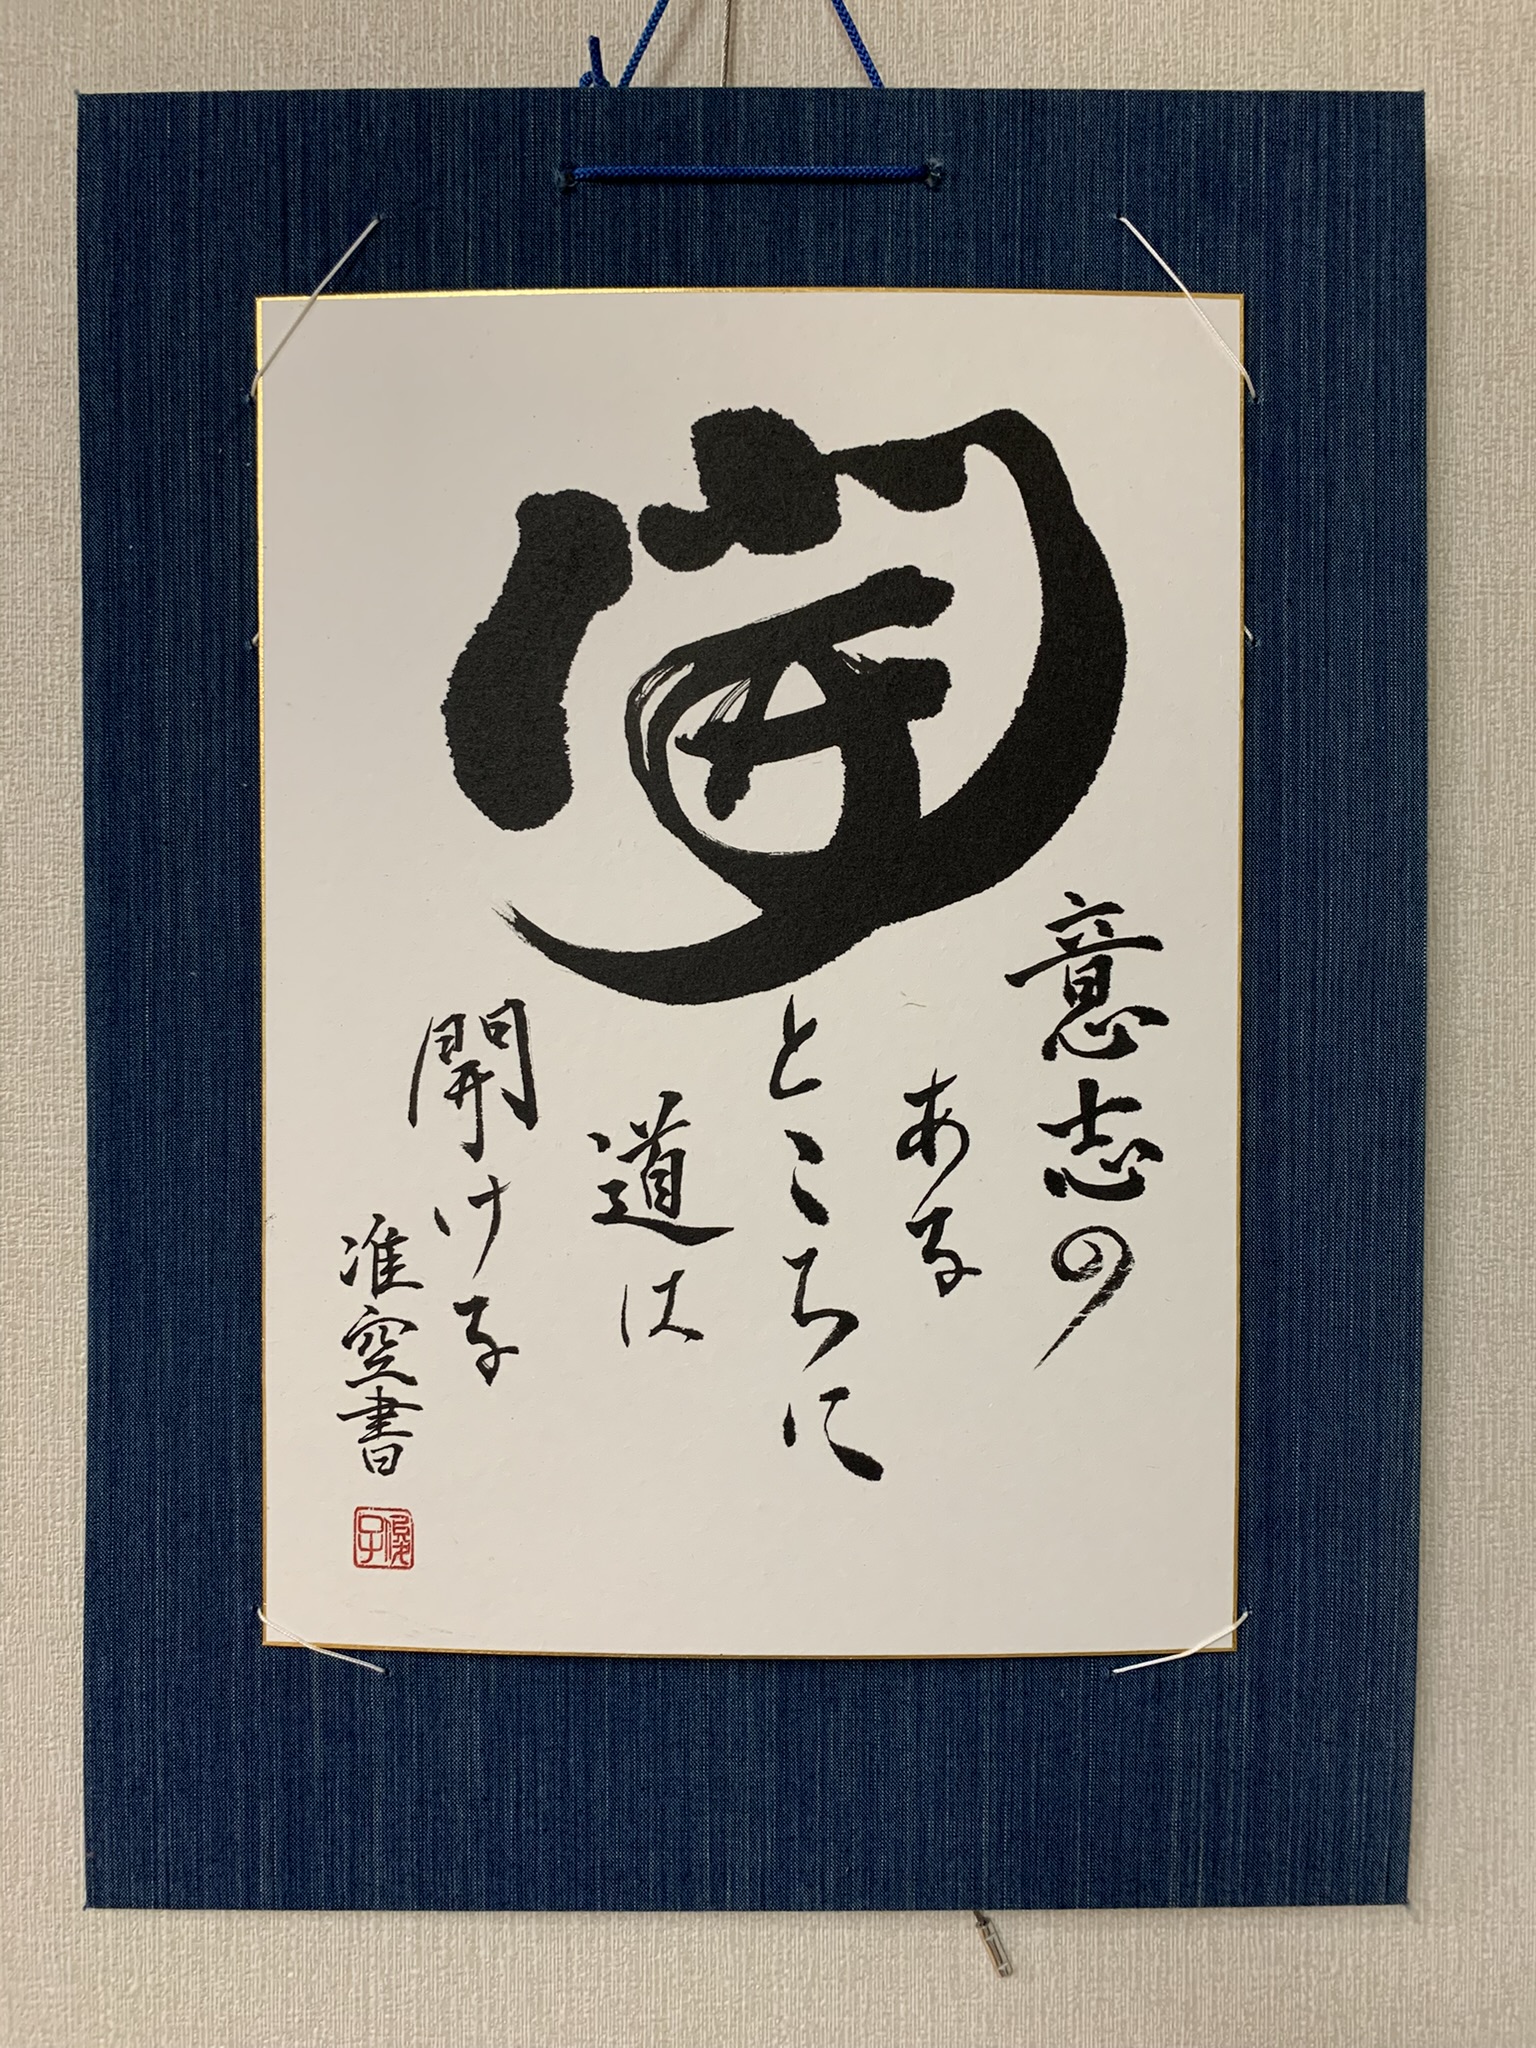 開
意志の
ある
ところに
道は
開ける
准空書